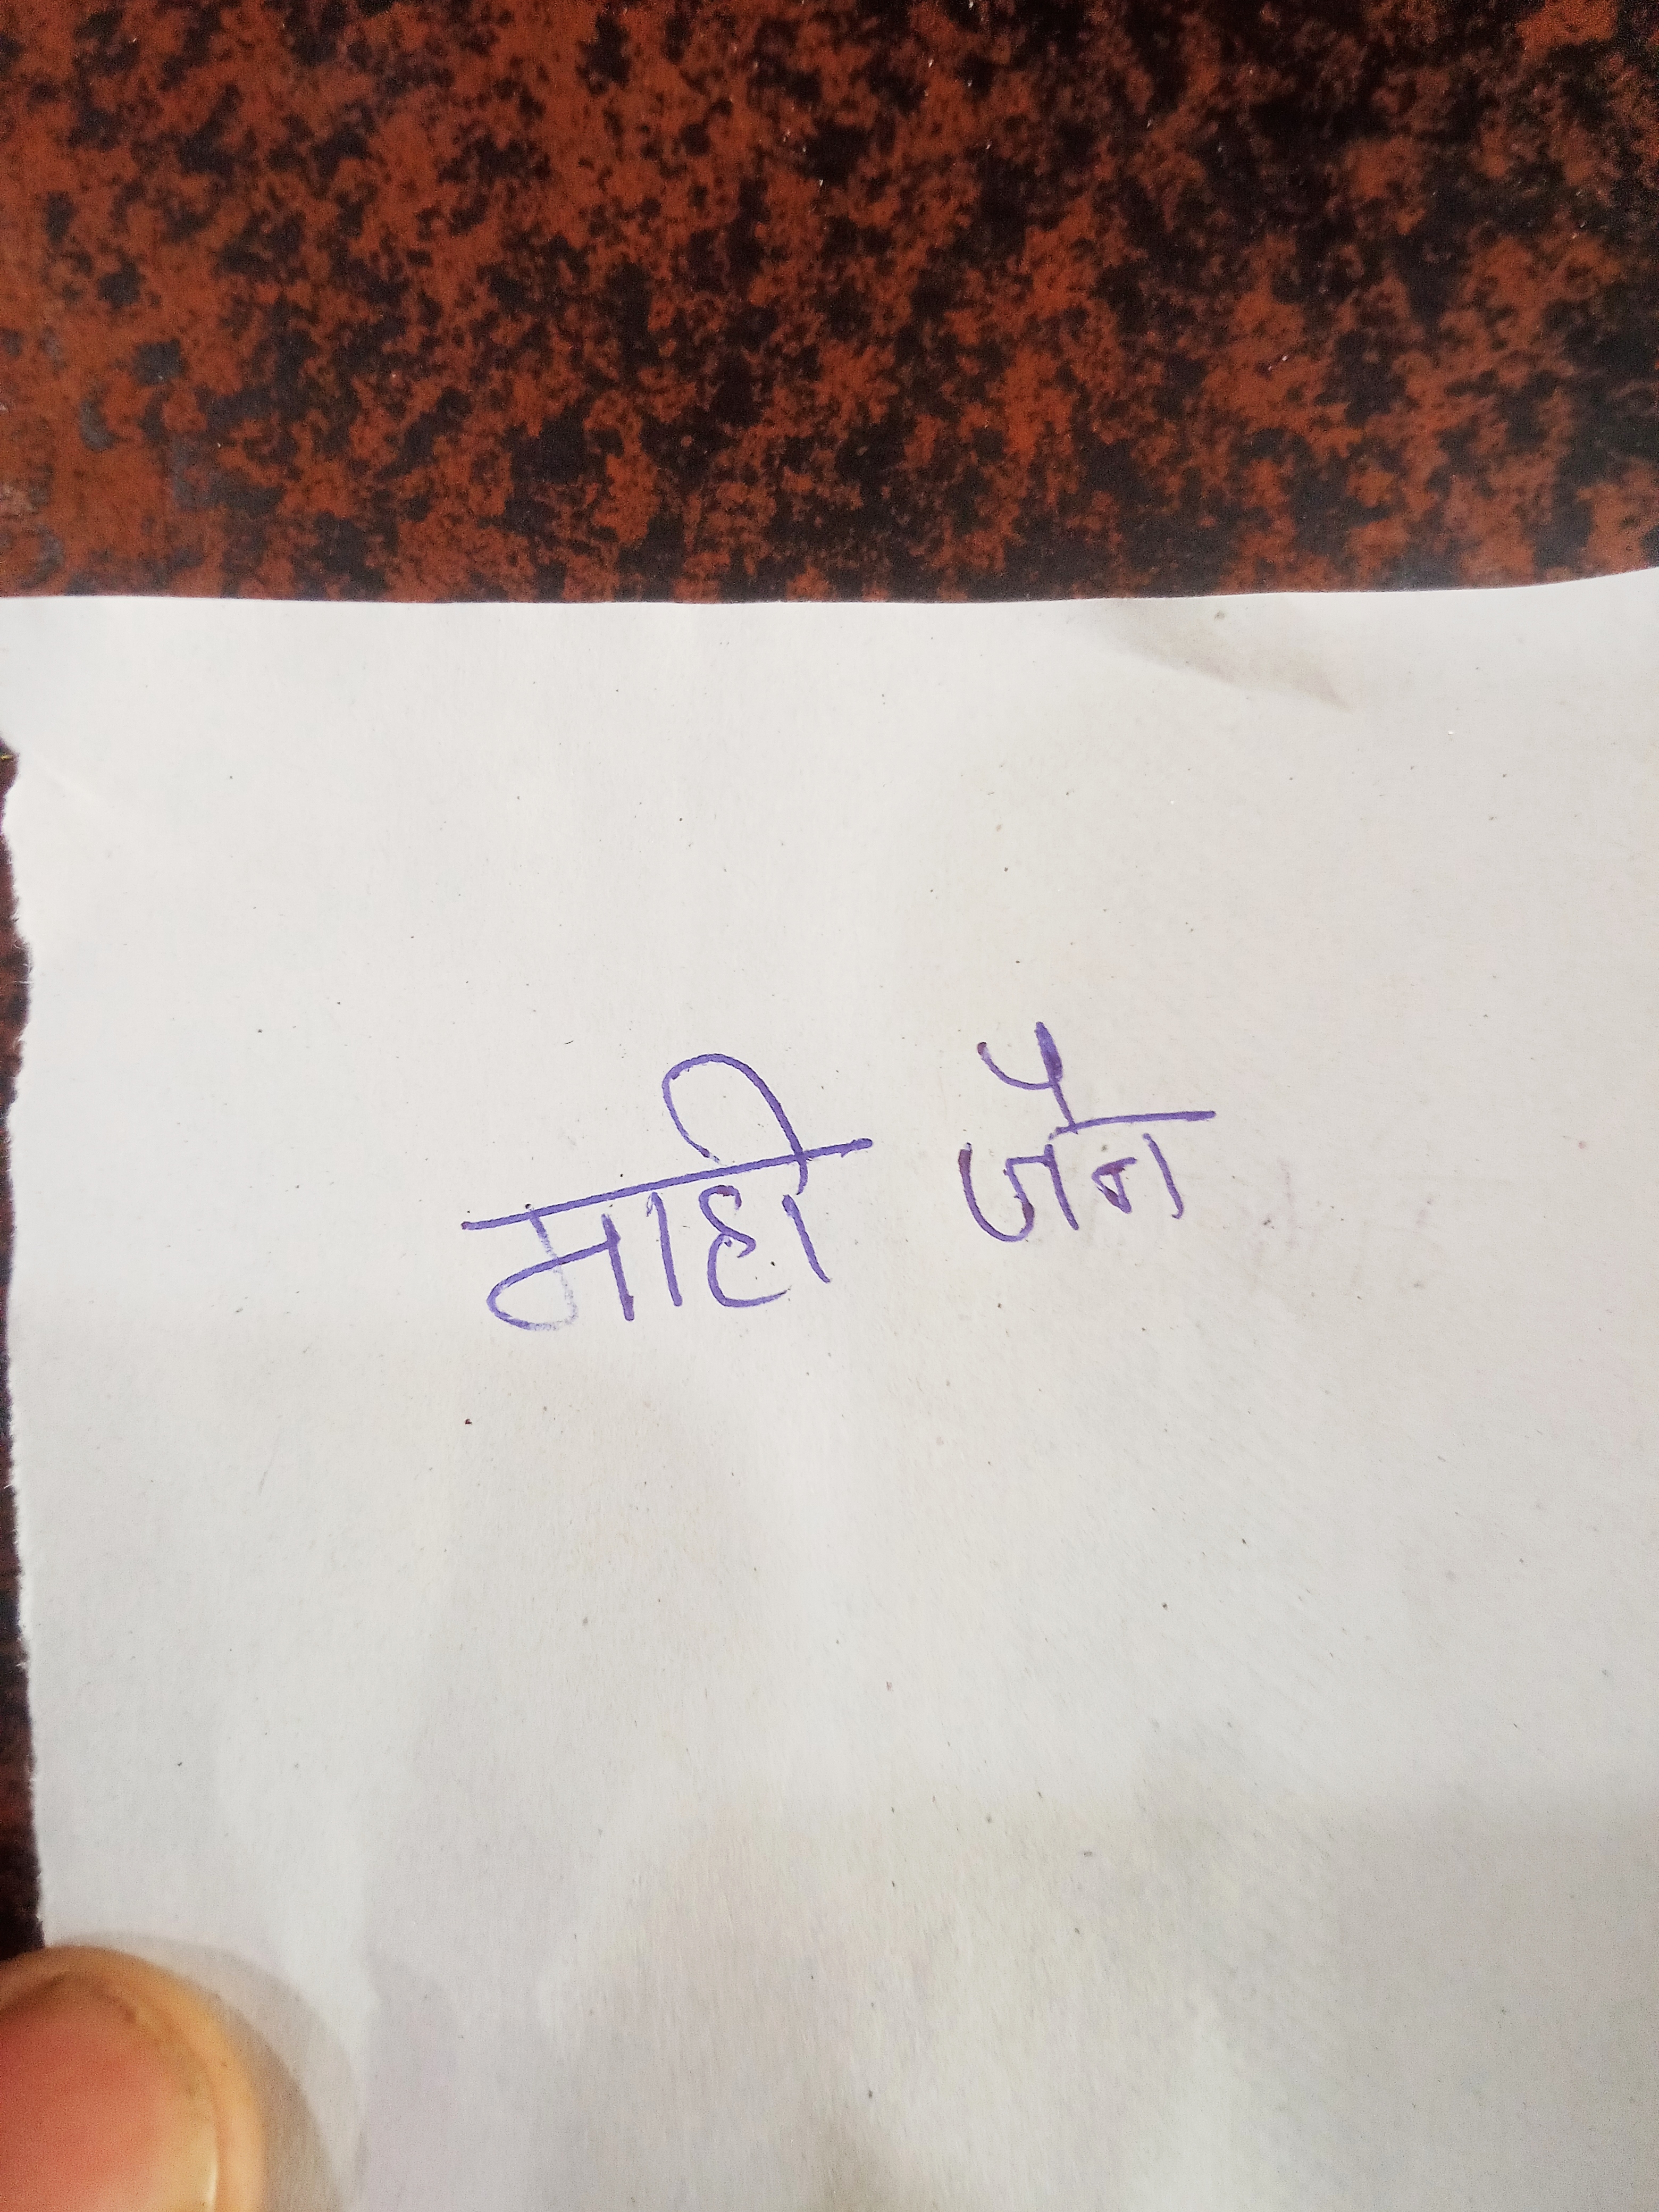 माही जैन